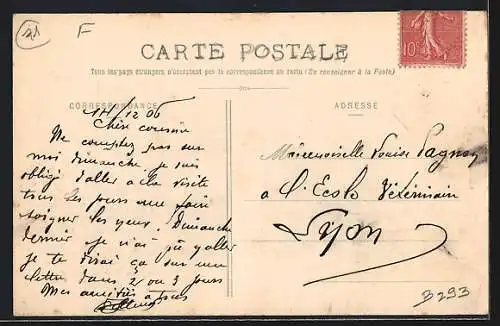 21
F
CARTE POSTALE
10
Tous les pays étrangers n'acceptent pas la correspondance au recto (Se renseigner à la Poste)
CORRESPONDANCE
ADRESSE
14/12 06
Chère cousine
Ne comptez pas sur
moi dimanche je suis
obligé d'aller a la visite
tous les jours me faire
soigner les yeux. Dimanche
dernier je n'ai pu y aller
je te dirai ça sur une
lettre dans 2 ou 3 jours
Mes amitiés a tous
Mademoiselle Louise Pagnon
a l'Ecole Vétérinaire
Lyon
3293